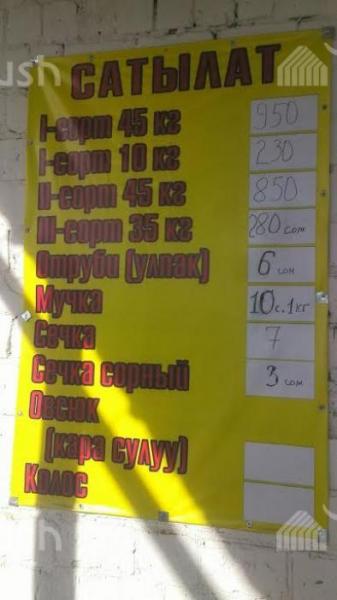 ush
САТЫЛАТ
I-сорт 45 кг 950
I-сорт 10 кг 230
II-сорт 45 кг 850
III-сорт 35 кг 280 сом
Отруби (улпак) 6 сом
Мучка 10с.1кг
Сечка 7
Сечка сорный 3 сом
Овсюк
(кара сулуу)
Колос
ush